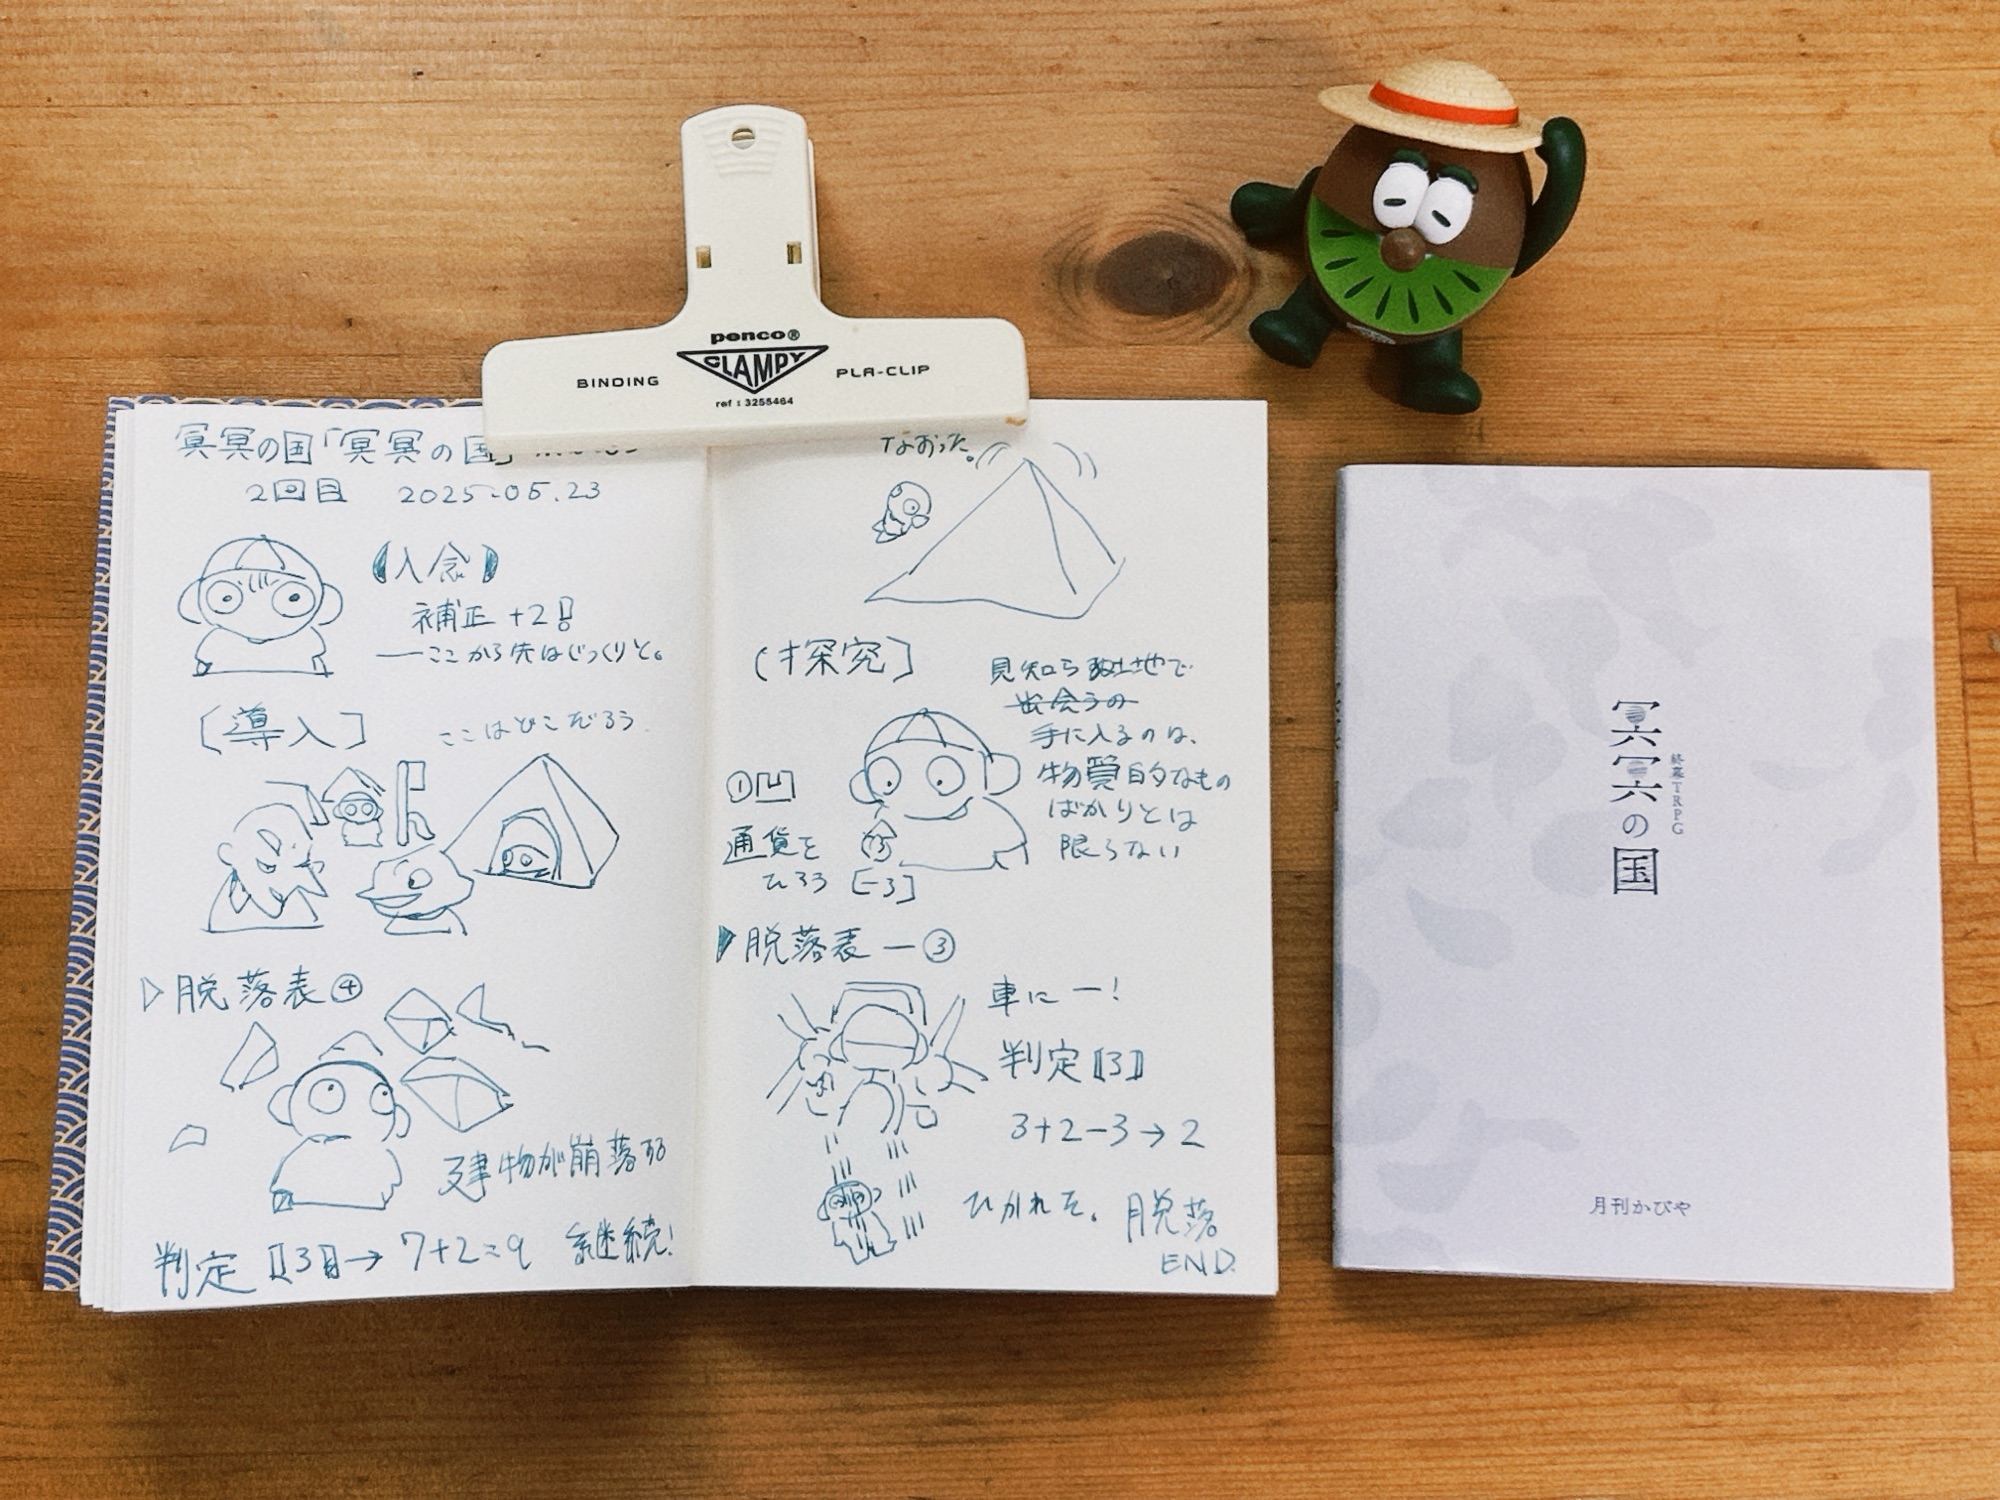 penco®
CLAMPY
BINDING
PLA-CLIP
ref : 3255464
冥冥の国「冥冥の国」
2回目 2025.05.23
【入念】
補正 +2!
──ここから先はじっくりと。
〔導入〕
ここはどこだろう
▷脱落表④
建物が崩落する
判定【3】→ 7+2=9 継続!
なおった。
〔探究〕
見知らぬ土地で
出会うの
手に入るのは、
物質的なもの
ばかりとは
限らない
①凹
通貨を
ひろう [-3]
▶脱落表 ― ③
車に ー!
判定【3】
3+2-3→2
ひかれた。脱落
END.
冥冥の国
終幕TRPG
月刊かびや